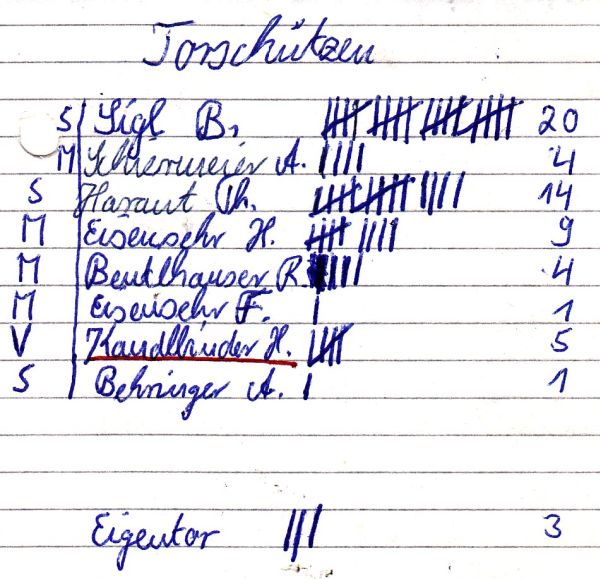 Torschützen
S Sigl B. 20
M Schiermeier A. 4
S Haraut Th. 14
M Eisensehr H. 9
M Beutlhauser R. 4
M Eisensehr F. 1
V Kandlbinder H. 5
S Behringer A. 1
Eigentor 3